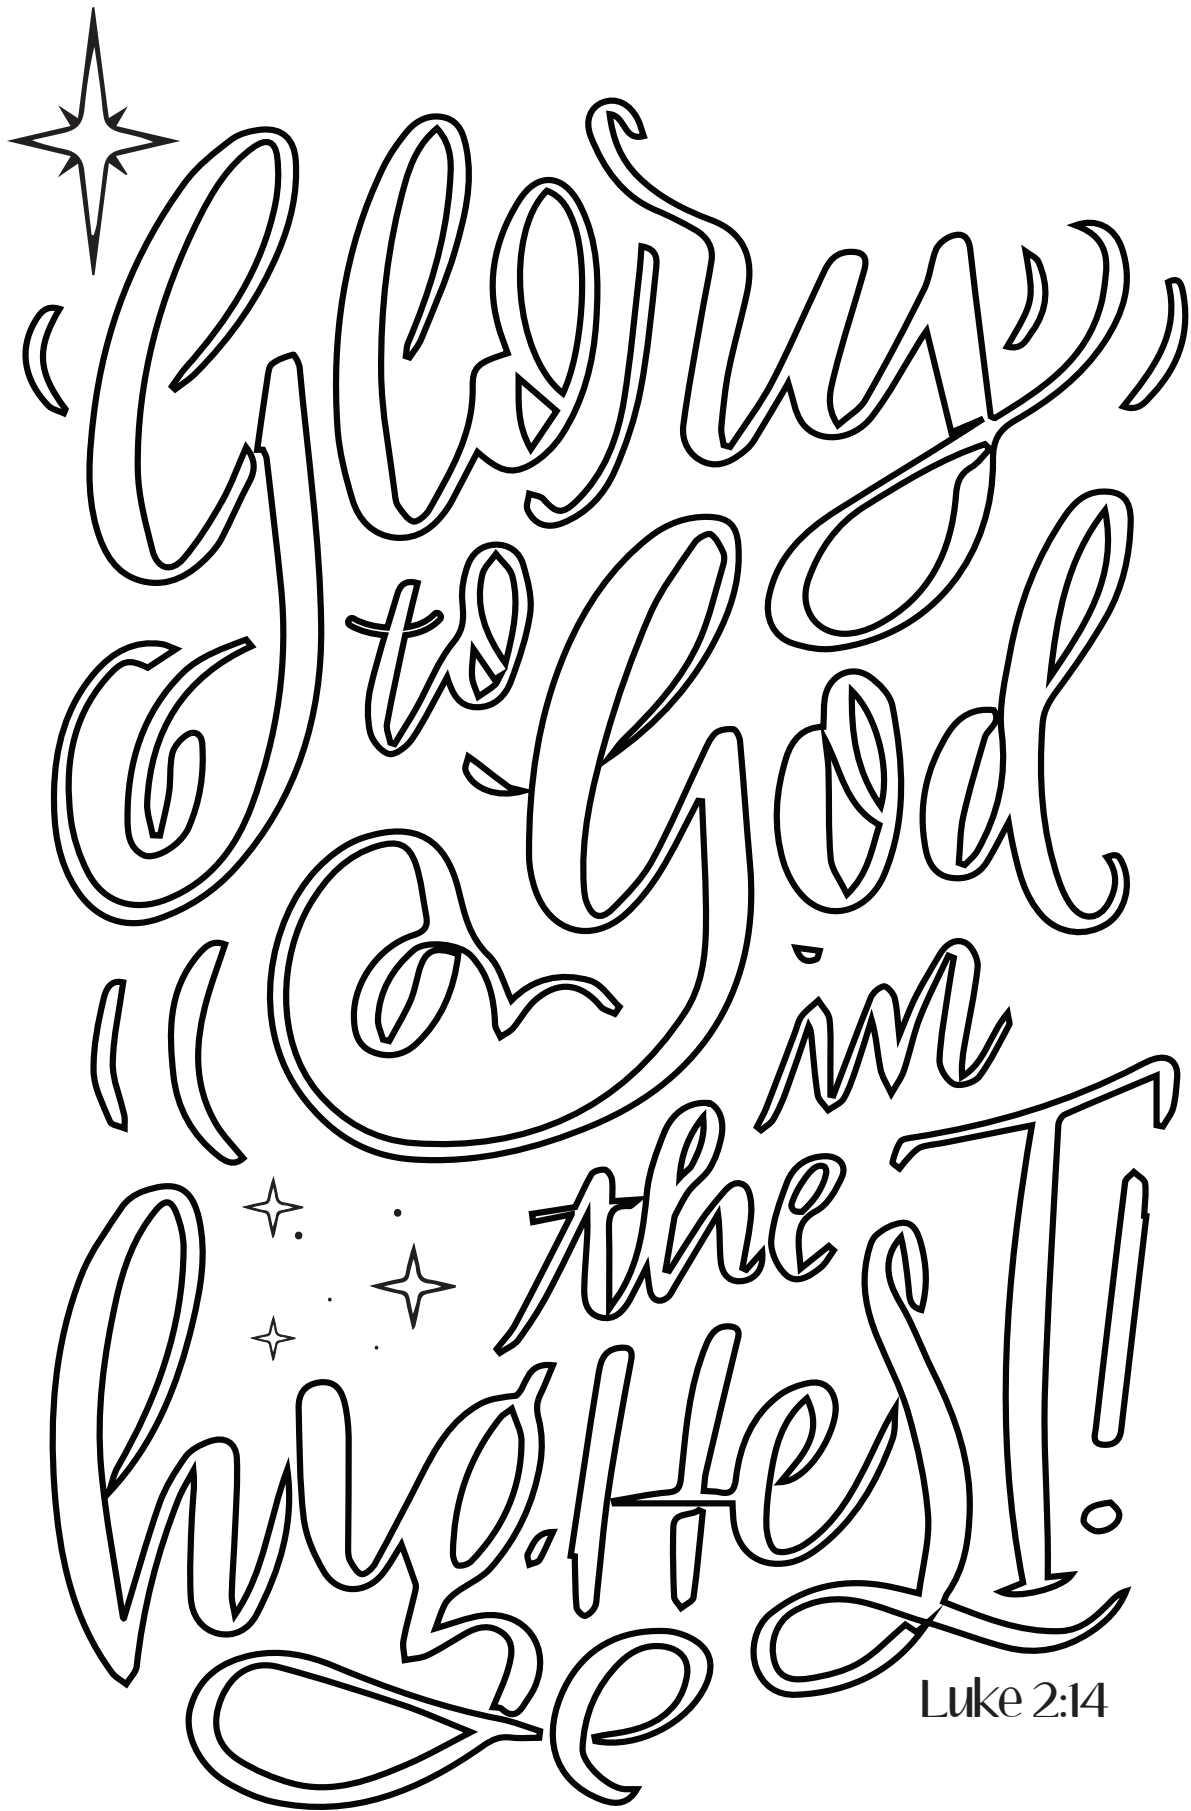 Glory
to God
in
the
highesT!
Luke 2:14